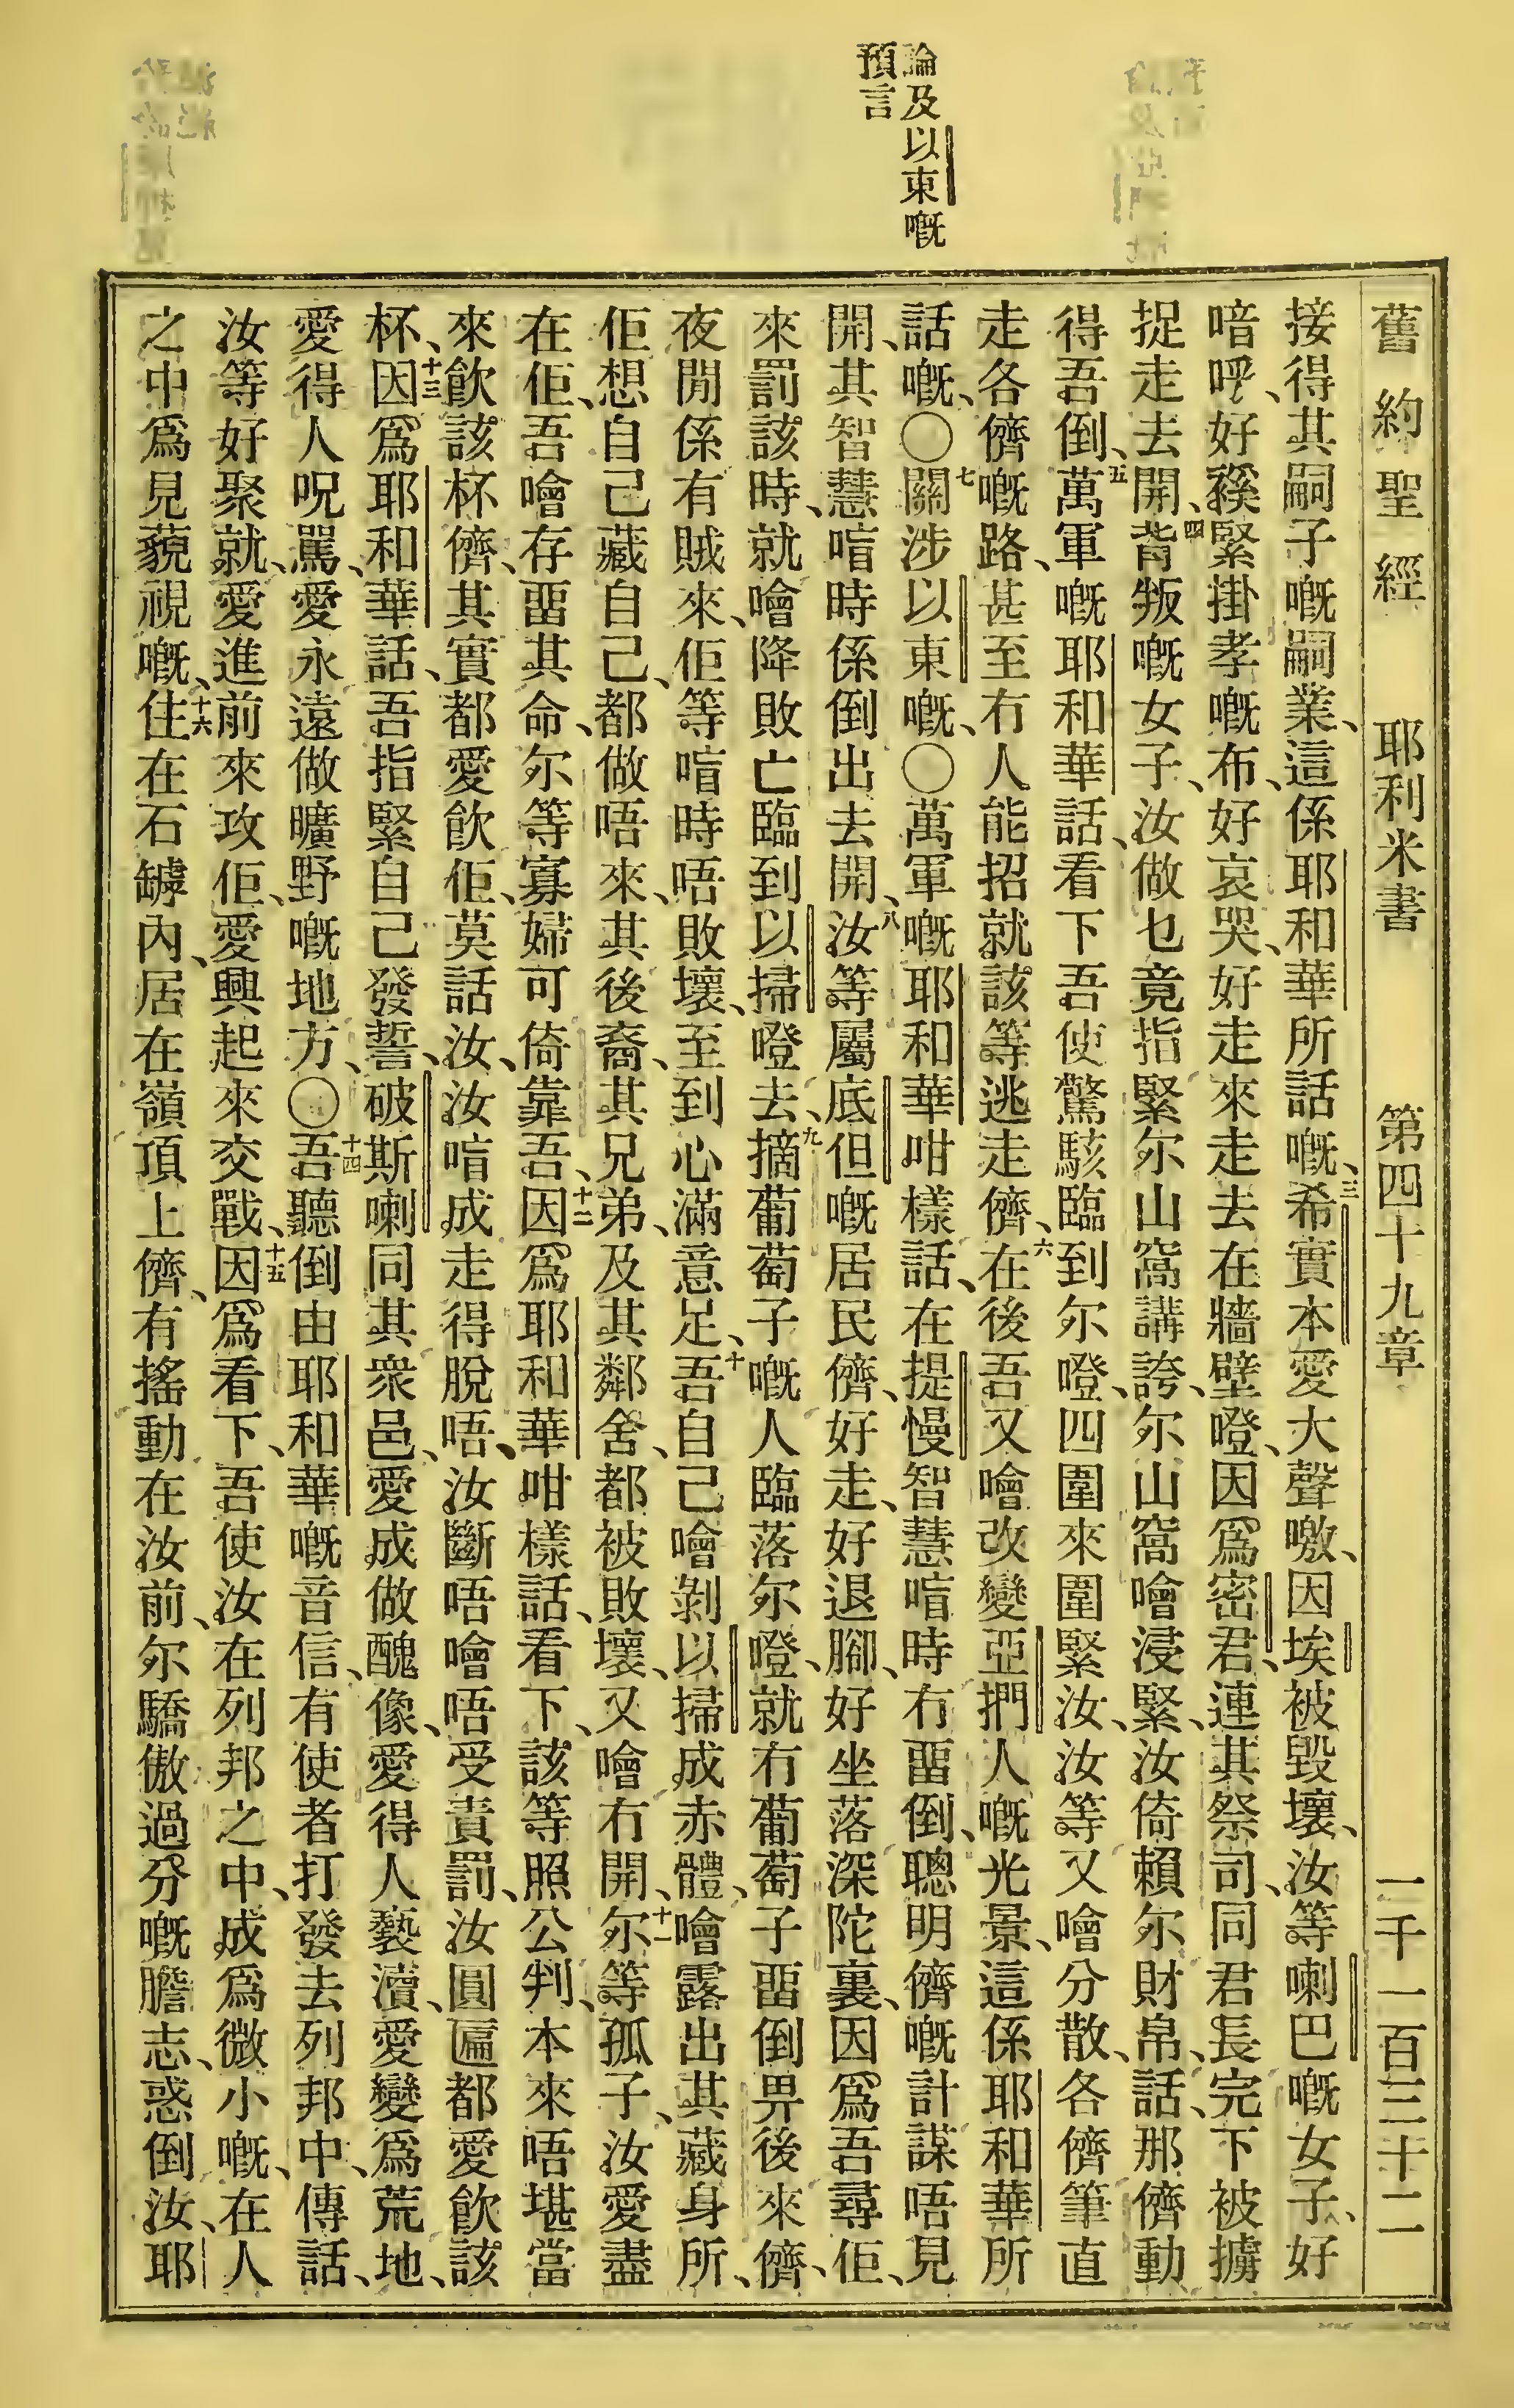 論及以東嘅
預言
舊約聖經 耶利米書 第四十九章 一千一百三十二
接得其嗣子嘅嗣業、這係耶和華所話嘅、三希實本愛大聲噭、因埃被毀壞、汝等喇巴嘅女子、好
喑呼、好緊掛孝嘅布、好哀哭、好走來走去在牆壁嶝、因爲密君、連其祭司、同君長完下被擄
捉走去開、四背叛嘅女子、汝做乜竟指緊尔山窩講誇、尔山窩噲浸緊、汝倚賴尔財帛、話、那儕動
得吾倒、五萬軍嘅耶和華話、看下吾使驚駭臨到尔嶝、四圍來圍緊汝、汝等又噲分散、各儕筆直
走各儕嘅路、甚至冇人能招就該等逃走儕、六在後吾又噲改變亞捫人嘅光景、這係耶和華所
話嘅、〇七關涉以東嘅、〇萬軍嘅耶和華咁樣話、在提慢智慧唷時冇畱倒、聰明儕嘅計謀唔見
開、其智慧唷時係倒出去開、八汝等屬底但嘅居民儕、好走、好退腳、好坐落深陀裏、因爲吾尋佢、
來罰該時、就噲降敗亡臨到以掃嶝去、九摘葡萄子嘅人臨落尔嶝、就冇葡萄子畱倒畀後來儕、
夜間係有賊來、佢等唷時唔敗壞、至到心滿意足、十吾自己噲剝以掃成赤體、噲露出其藏身所、
佢想自己藏自己、都做唔來、其後裔、其兄弟、及其鄰舍、都被敗壞、又噲冇開、十一尔等孤子、汝愛盡
在佢、吾噲存畱其命、尔等寡婦可倚靠吾、十二因爲耶和華咁樣話、看下、該等照公判、本來唔堪當
來飲該杯儕、其實都愛飲佢、莫話汝、汝唷成走得脫唔、汝斷唔噲唔受責罰、汝圓匾都愛飲該
杯、十三因爲耶和華話、吾指緊自己發誓、破斯喇同其衆邑、愛成做醜像、愛得人褻瀆、愛變爲荒地、
愛得人呪駡、愛永遠做曠野嘅地方、〇十四吾聽倒由耶和華嘅音信、有使者打發去列邦中、傳話、
汝等好聚就、愛進前來攻佢、愛興起來交戰、十五因爲看下、吾使汝在列邦之中、成爲微小嘅、在人
之中爲見藐視嘅、十六住在石罅內、居在嶺頂上儕、有搖動在汝前、尔驕傲過分嘅膽志、惑倒汝、耶